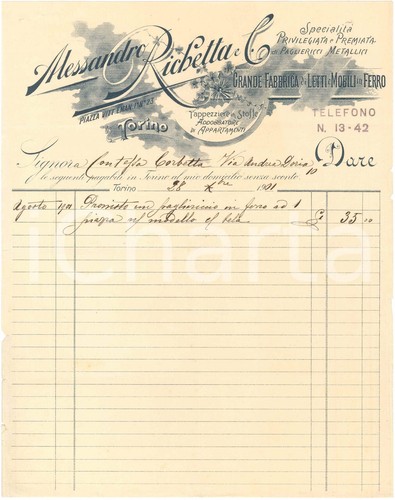 Alessandro Richetta e C.
Specialità
Privilegiata e Premiata
in Pagliericci Metallici
Grande Fabbrica di Letti e Mobili in Ferro
Piazza Vitt. Eman. I No 23
Torino
Tappezzieri in Stoffe
Addobbatore
di Appartamenti
TELEFONO
N. 13-42
Signora Contessa Corbetta Via Andrea Doria 10 Dare
le seguenti pagabili in Torino al mio domicilio senza sconto
Torino 28 Xbre 1901
Agosto Provvisto un pagliericcio in ferro ad 1 £ 35
piazza modello